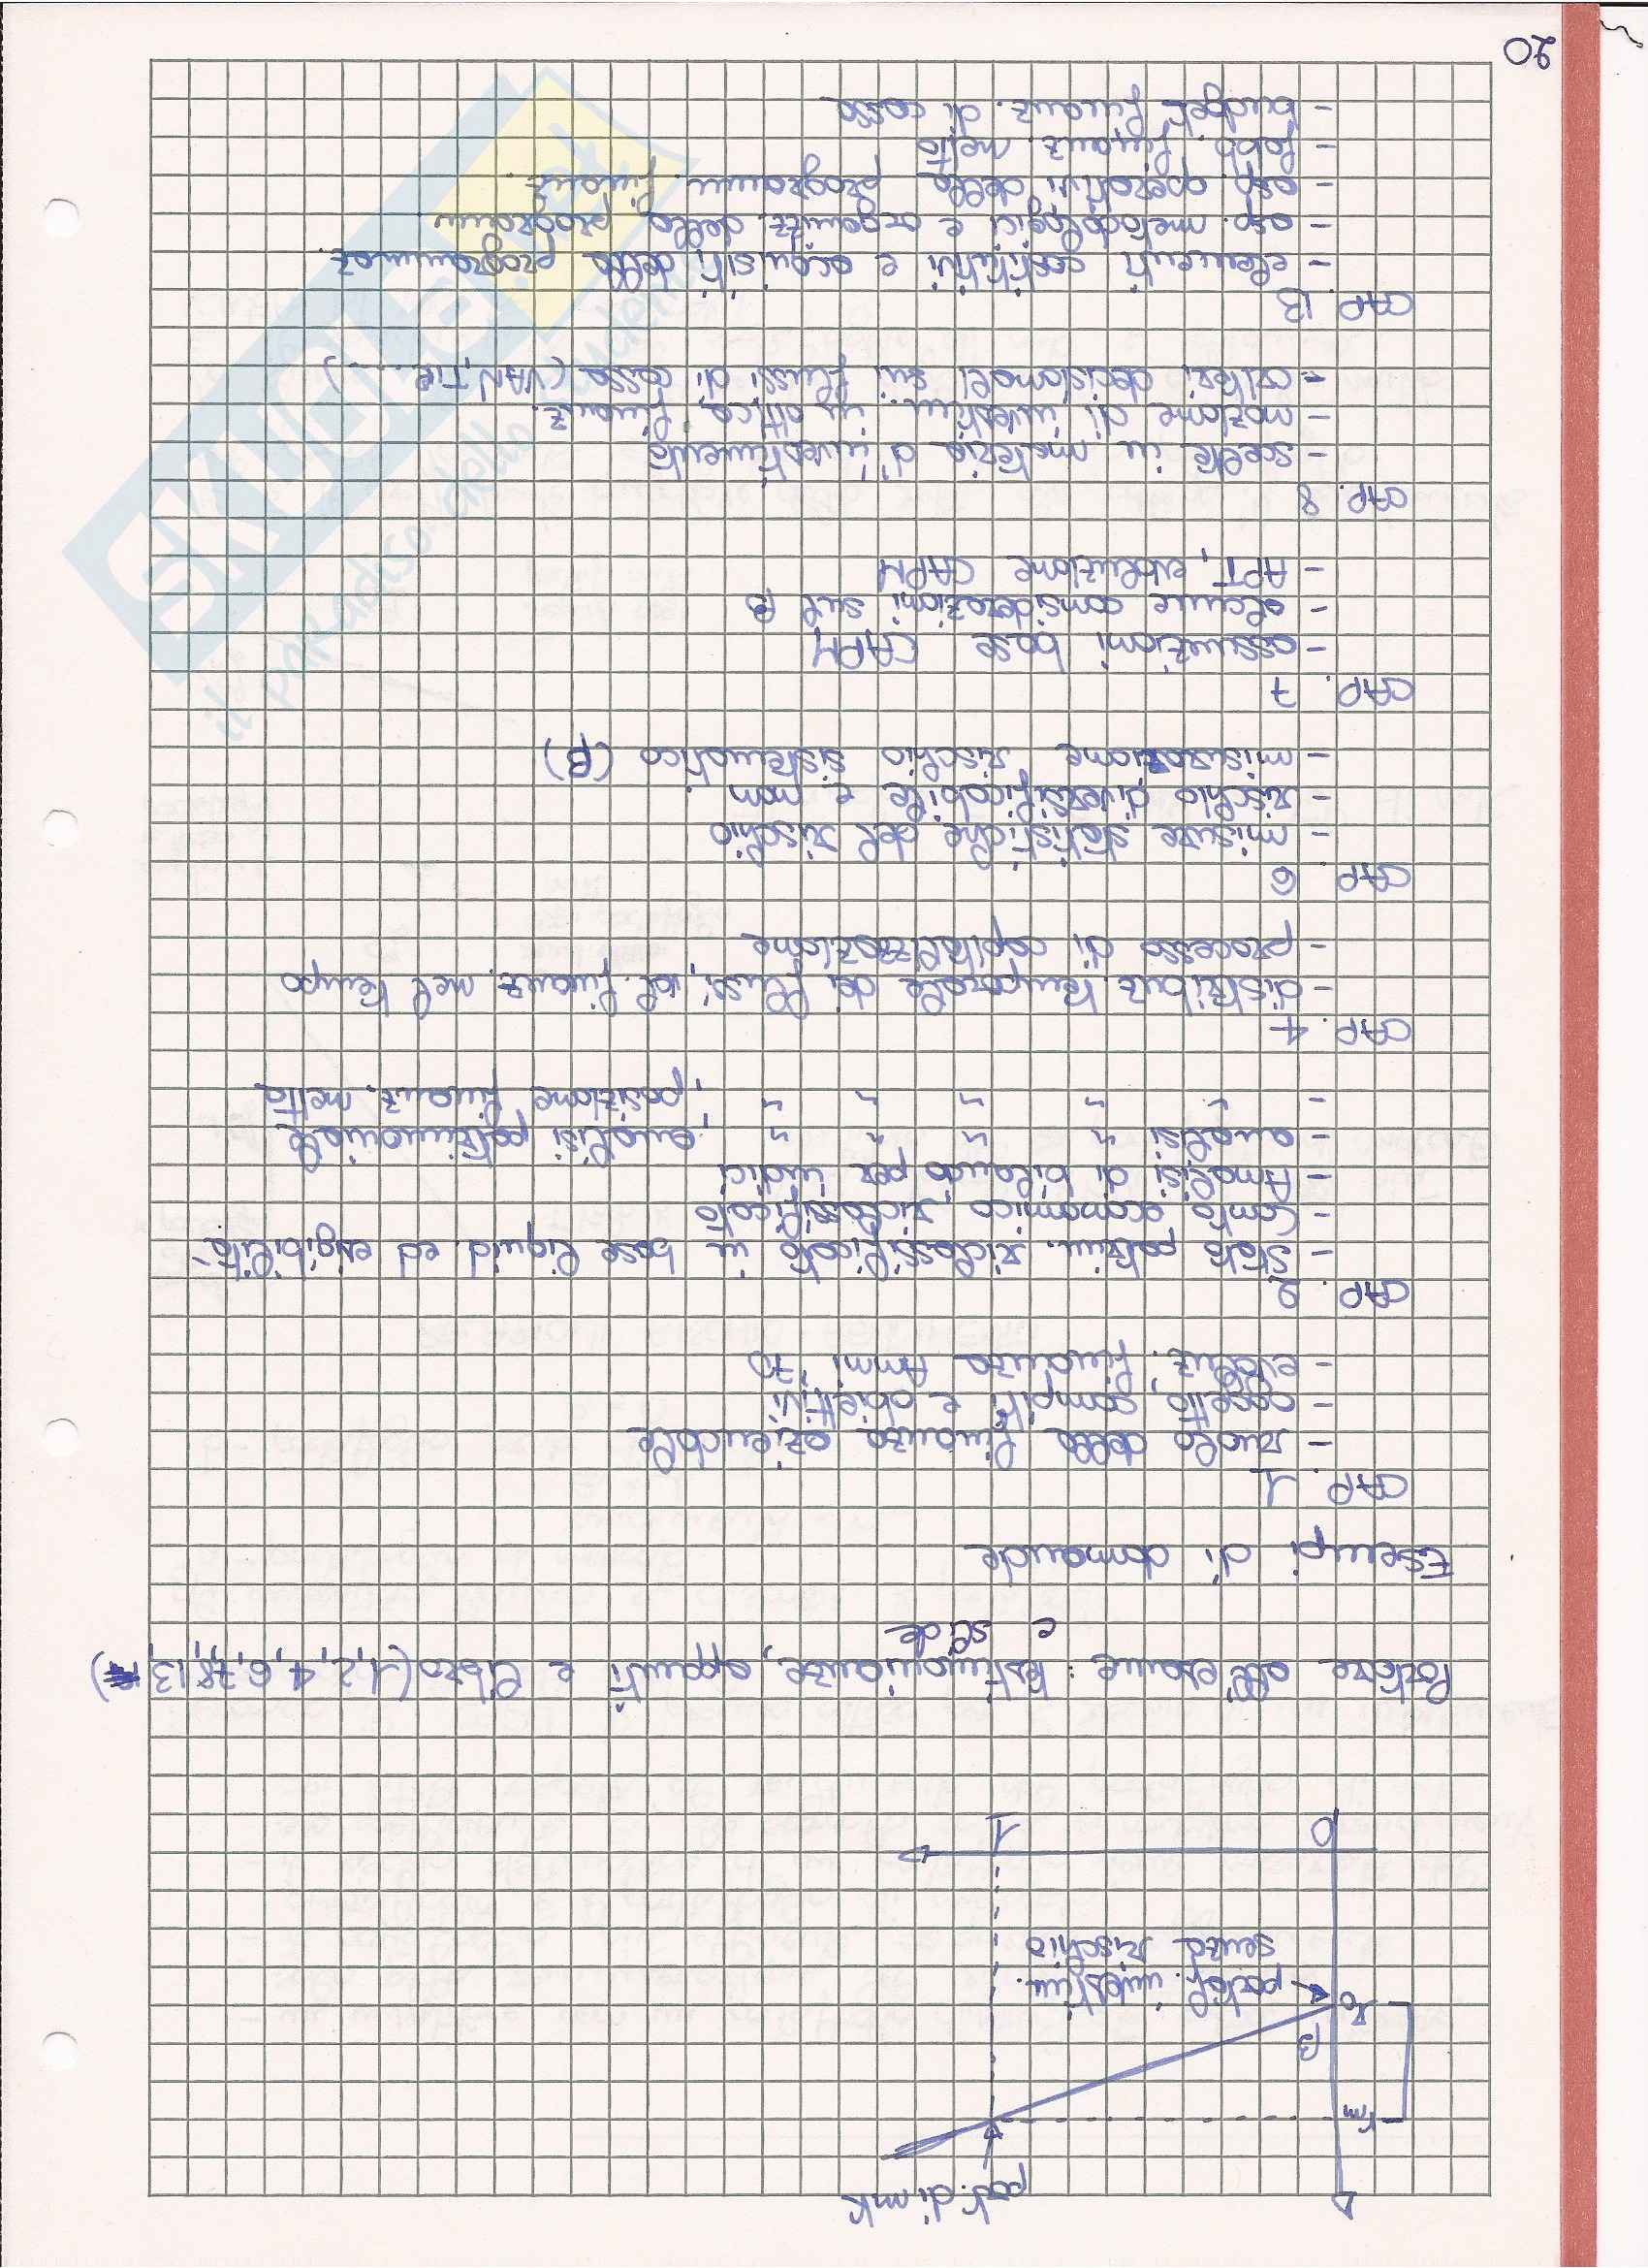 port. di mk
rm
β
r0
portaf. investim.
senza rischio
0 1
Portare all'esame: testimonianze, appunti e libro (1, 2, 4, 6, 7, 8, 13)
e slide
Esempi di domande
CAP. 1
- ruolo della finanza aziendale
- oggetto, compiti e obiettivi
- evoluz. finanza Anni '70
CAP. 2
- stato patrim. riclassificato in base liquid. ed esigibilità
- Conto economico riclassificato
- Analisi di bilancio per indici
- analisi " " " " ; analisi patrimoniale
- " " " " " ; posizione finanz. netta
CAP. 4
- distribuz. temporale dei flussi, val. finanz. nel tempo
- processo di capitalizzazione
CAP. 6
- misure statistiche del rischio
- rischio diversificabile e non
- misurazione rischio sistematico (β)
CAP. 7
- assunzioni base CAPM
- alcune considerazioni sul β
- APT, evoluzione CAPM
CAP. 8
- scelte in materia d'investimento
- nozione di investim. in ottica finanz.
- criteri decisionali sui flussi di cassa (VAN, TIR ...)
CAP. 13
- elementi costitutivi e acquisiti della programmaz.
- asp. metodologici e organizz. della programm
- asp. operativi della programm. finanz.
- fabb. finanz. netto
- budget finanz. di cassa
20
SKUOLA.net
il paradiso dello studente